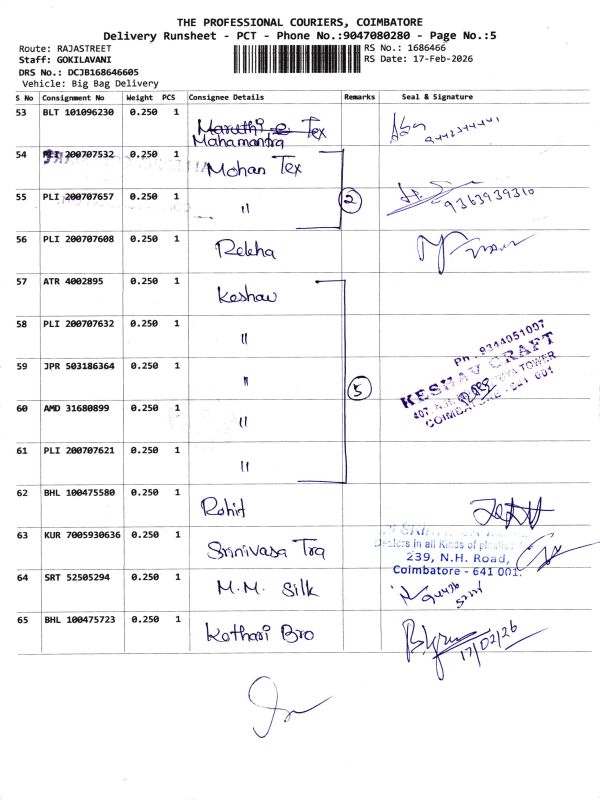 THE PROFESSIONAL COURIERS, COIMBATORE
Delivery Runsheet - PCT - Phone No.:9047080280 - Page No.:5
Route: RAJASTREET
RS No.: 1686466
Staff: GOKILAVANI
RS Date: 17-Feb-2026
DRS No.: DCJB168646605
Vehicle: Big Bag Delivery
S No Consignment No Weight PCS Consignee Details Remarks Seal & Signature
53 BLT 101096230 0.250 1 Maruthi Tex
Mahamantra
54 PLI 200707532 0.250 1 Mohan Tex
55 PLI 200707657 0.250 1 " 2 9363939310
56 PLI 200707608 0.250 1 Rekha
57 ATR 4002895 0.250 1 Keshav
58 PLI 200707632 0.250 1 "
59 JPR 503186364 0.250 1 " 5
Ph : 9344051007
KESHAV CRAFT
TOWER
COIMBATORE - 641 001
60 AMD 31680899 0.250 1 "
61 PLI 200707621 0.250 1 "
62 BHL 100475580 0.250 1 Rohit
63 KUR 7005930636 0.250 1 Srinivasa Tra
Dealers in all Kinds of
239, N.H. Road,
Coimbatore - 641 001.
64 SRT 52505294 0.250 1 M.M. Silk
65 BHL 100475723 0.250 1 Kothari Bro
17/02/26